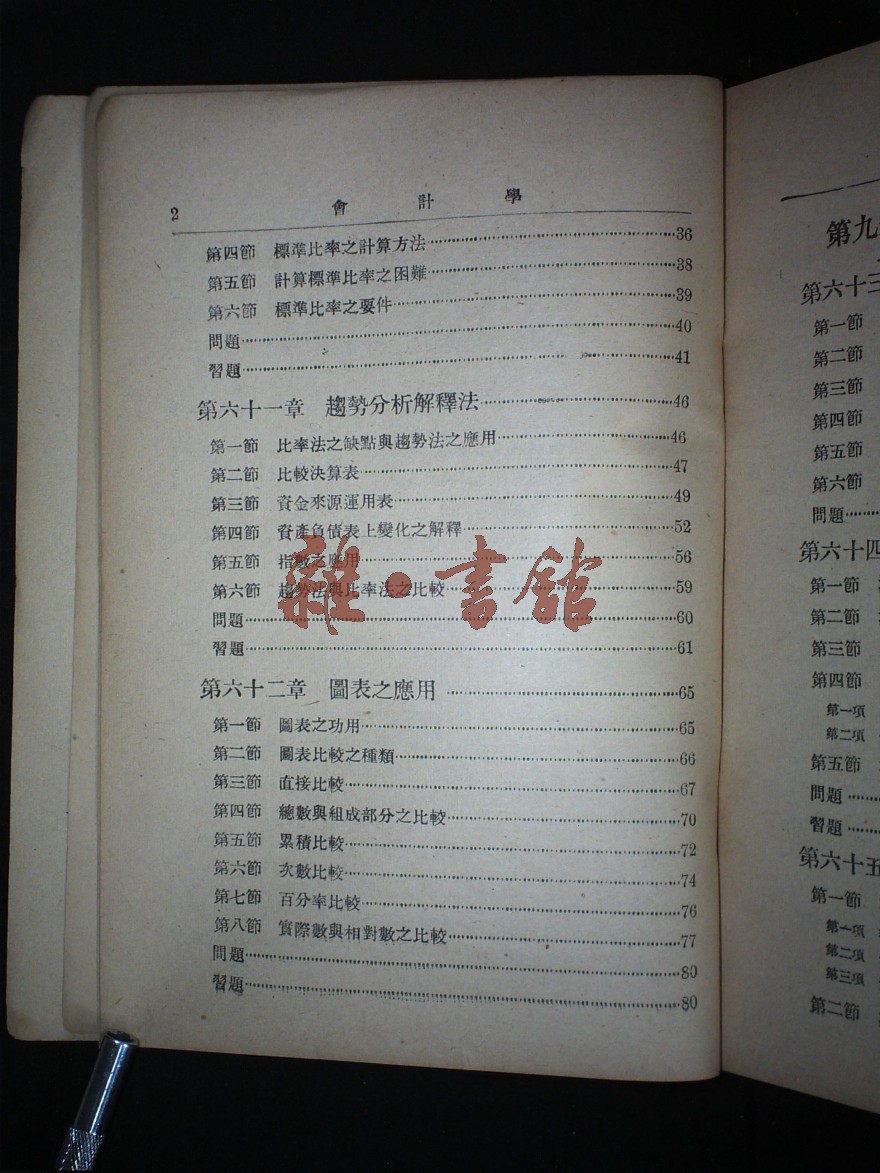 2
會計學
第四節 標準比率之計算方法……36
第五節 計算標準比率之困難……38
第六節 標準比率之要件……39
問題……40
習題……41
第六十一章 趨勢分析解釋法……46
第一節 比率法之缺點與趨勢法之應用……46
第二節 比較決算表……47
第三節 資金來源運用表……49
第四節 資產負債表上變化之解釋……52
第五節 指數之應用……56
第六節 趨勢法與比率法之比較……59
問題……60
習題……61
第六十二章 圖表之應用……65
第一節 圖表之功用……65
第二節 圖表比較之種類……66
第三節 直接比較……67
第四節 總數與組成部分之比較……70
第五節 累積比較……72
第六節 次數比較……74
第七節 百分率比較……76
第八節 實際數與相對數之比較……77
問題……80
習題……80
雜·書館
第九
第六十三
第一節
第二節
第三節
第四節
第五節
第六節
問題……
第六十四
第一節
第二節
第三節
第四節
第一項
第二項
第五節
問題……
習題……
第六十五
第一節
第一項
第二項
第三項
第二節